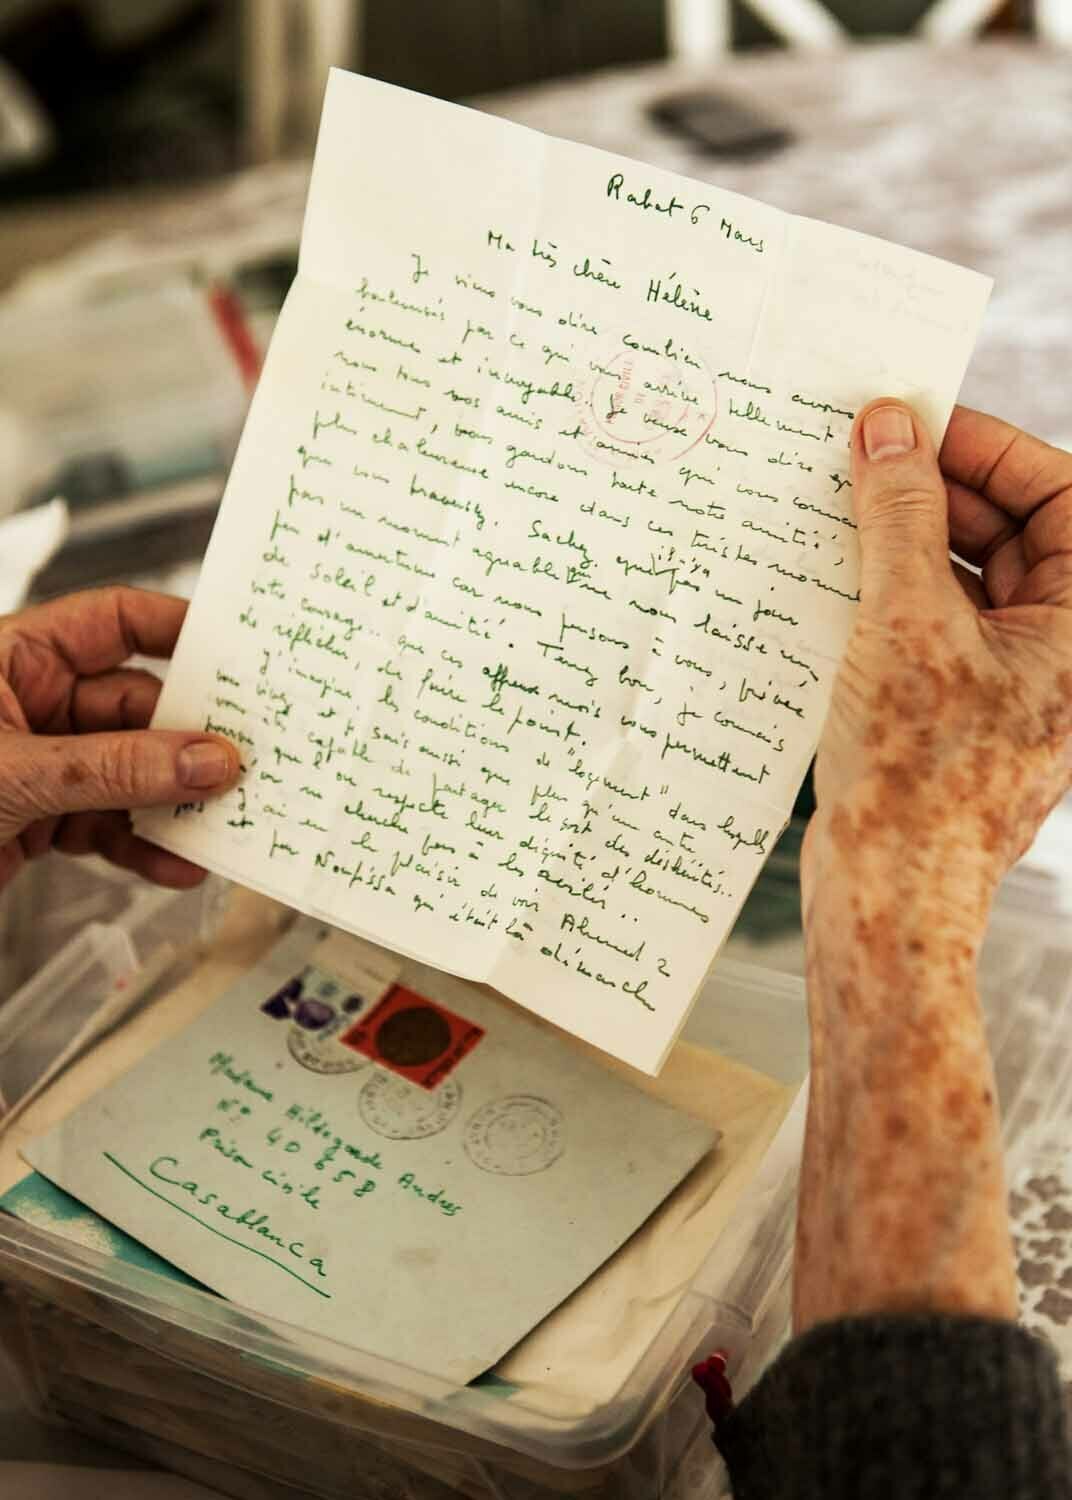 Rabat 6 Mars
Ma très chère Hélène
Je viens vous dire combien nous avons
par ce qui vous arrive tellement
énorme et incroyable.. Je veux vous dire
nous tous vos amis et amies qui vous
intimement, vous gardons toute notre amitié,
plus chaleureuse encore dans ces tristes
que vous traversez. Sachez qu'il n'y a pas un jour
pas un moment agréable qui ne nous laisse un
peu d'amertume car nous pensons à vous, privée
de soleil et d'amitié. Tenez bon, je connais
votre courage.. que ces affreux mois vous permettent
de réfléchir, de faire le point.
J'imagine les conditions de "logement" dans
vous vivez et je sais aussi que plus qu'une autre
vous êtes capable de partager le sort des déshérités..
pourvu que l'on respecte leur dignité d'hommes
qu'on ne cherche pas à les avilir..
J'ai eu le plaisir de voir Ahmed 2
fois et par Noufissa qui était là
Madame Hildegarde Andres
N° 40658
Prison civile
Casablanca